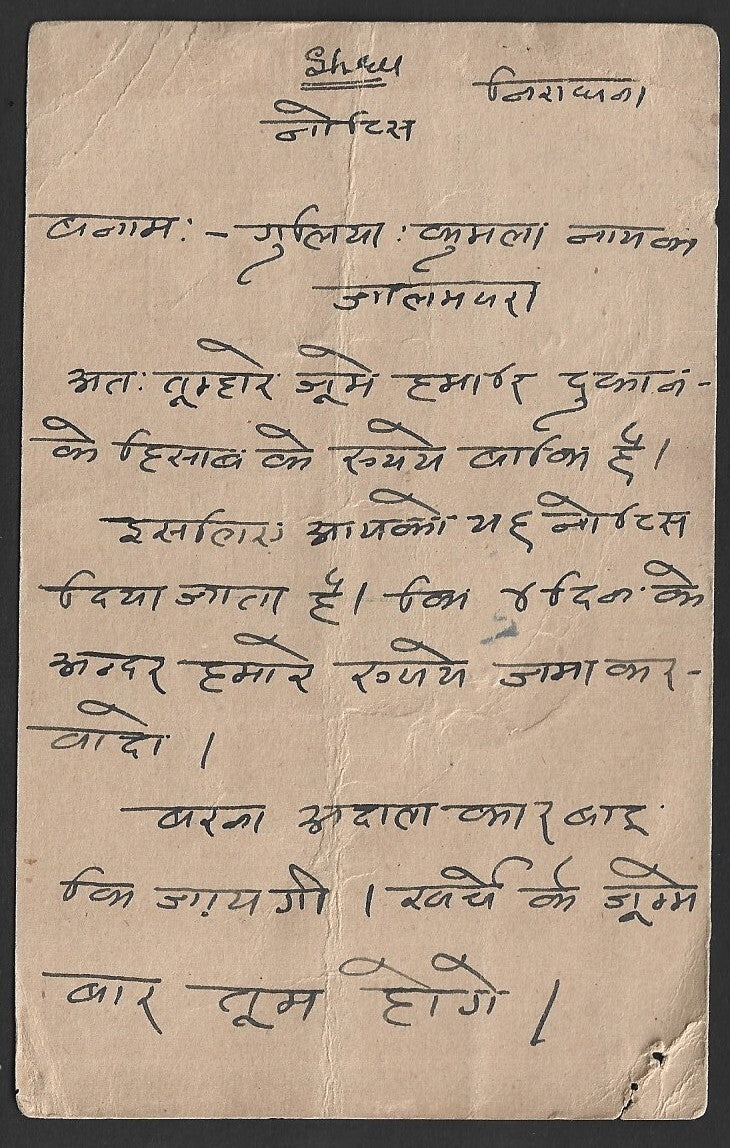 निराधना
नोटिस
बनाम: - गुलिया: कुमला नायक
जालिमपरा
अत: तूम्हारे जूमे हमारि दुकान -
के हिसाब के रुपये बाकि है।
इसलिए आपको यह नोटिस
दिया जाता है। कि ४ दिन के
अन्दर हमारे रुपये जमा कर -
वादो।
बरना अदालत कारबाइ
कि जायगी। खर्चे के जूम्मे
बार तूम होगे।